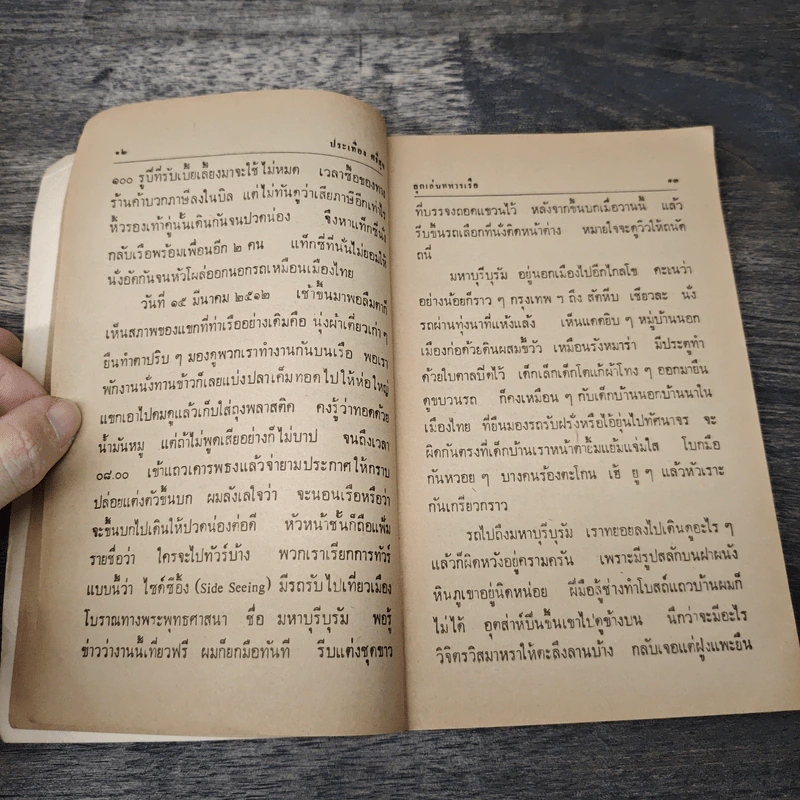 ๑๒ ประเทือง ศรีสุข
๑๐๐ รูปีที่รับเบี้ยเลี้ยงมาจะใช้ไม่หมด เวลาซื้อของทาง
ร้านค้าบวกภาษีลงในบิล แต่ไม่ทันดูว่าเสียภาษีอีกเท่าไร
หิ้วรองเท้าคู่นั้นเดินกันจนปวดน่อง จึงหาแท็กซี่นั่ง
กลับเรือพร้อมเพื่อนอีก ๒ คน แท็กซี่ที่นั่นไม่ยอมให้
นั่งอัดกันจนหัวโผล่ออกนอกรถเหมือนเมืองไทย
วันที่ ๑๕ มีนาคม ๒๕๑๒ เช้าขึ้นมาพอลืมตาก็
เห็นสภาพของแขกที่ท่าเรืออย่างเดิมคือ นุ่งผ้าเตี่ยวเก่า ๆ
ยืนทำตาปริบ ๆ มองดูพวกเราทำงานกันบนเรือ พอเรา
พักงานนั่งทานข้าวก็เลยแบ่งปลาเค็มทอดไปให้ห่อใหญ่
แขกเอาไปดมดูแล้วเก็บใส่ถุงพลาสติค คงรู้ว่าทอดด้วย
น้ำมันหมู แต่ถ้าไม่พูดเสียอย่างก็ไม่บาป จนถึงเวลา
๐๘.๐๐ เข้าแถวเคารพธงแล้วจ่ายามประกาศให้กราบ
ปล่อยแต่งตัวขึ้นบก ผมลังเลใจว่า จะนอนเรือหรือว่า
จะขึ้นบกไปเดินให้ปวดน่องต่อดี หัวหน้าชั้นก็ถือแฟ้ม
รายชื่อว่า ใครจะไปทัวร์บ้าง พวกเราเรียกการทัวร์
แบบนี้ว่า ไซด์ซีอิ้ง (Side Seeing) มีรถรับไปเที่ยวเมือง
โบราณทางพระพุทธศาสนา ชื่อ มหาบุรีบุรัม พอรู้
ข่าวว่างานนี้เที่ยวฟรี ผมก็ยกมือทันที รีบแต่งชุดขาว
ลูกเล่นทหารเรือ ๑๓
ที่บรรจงถอดแขวนไว้ หลังจากขึ้นบกเมื่อวานนี้ แล้ว
รีบขึ้นรถเลือกที่นั่งติดหน้าต่าง หมายใจจะดูวิวให้ถนัด
ถนี่
มหาบุรีบุรัม อยู่นอกเมืองไปอีกไกลโข คะเนว่า
อย่างน้อยก็ราว ๆ กรุงเทพ ฯ ถึง สัตหีบ เชียวละ นั่ง
รถผ่านทุ่งนาที่แห้งแล้ง เห็นแดดยิบ ๆ หมู่บ้านนอก
เมืองก่อด้วยดินผสมขี้วัว เหมือนรังหมาร่า มีประตูทำ
ด้วยใบตาลปิดไว้ เด็กเล็กเด็กโตแก้ผ้าโทง ๆ ออกมายืน
ดูขบวนรถ ก็คงเหมือน ๆ กับเด็กบ้านนอกบ้านนาใน
เมืองไทย ที่ยืนมองรถรับฝรั่งหรือไอ้ยุ่นไปทัศนาจร จะ
ผิดกันตรงที่เด็กบ้านเราหน้าตายิ้มแย้มแจ่มใส โบกมือ
กันหวอย ๆ บางคนร้องตะโกน เฮ้ ยู ๆ แล้วหัวเราะ
กันเกรียวกราว
รถไปถึงมหาบุรีบุรัม เราทยอยลงไปเดินดูอะไร ๆ
แล้วก็ผิดหวังอยู่ครามครัน เพราะมีรูปสลักบนฝาผนัง
หินภูเขาอยู่นิดหน่อย ฝีมือสู้ช่างทำโบสถ์แถวบ้านผมก็
ไม่ได้ อุตส่าห์ปีนขึ้นเขาไปดูข้างบน นึกว่าจะมีอะไร
วิจิตรวิสมาหราให้ตะลึงลานบ้าง กลับเจอแต่ฝูงแพะยืน